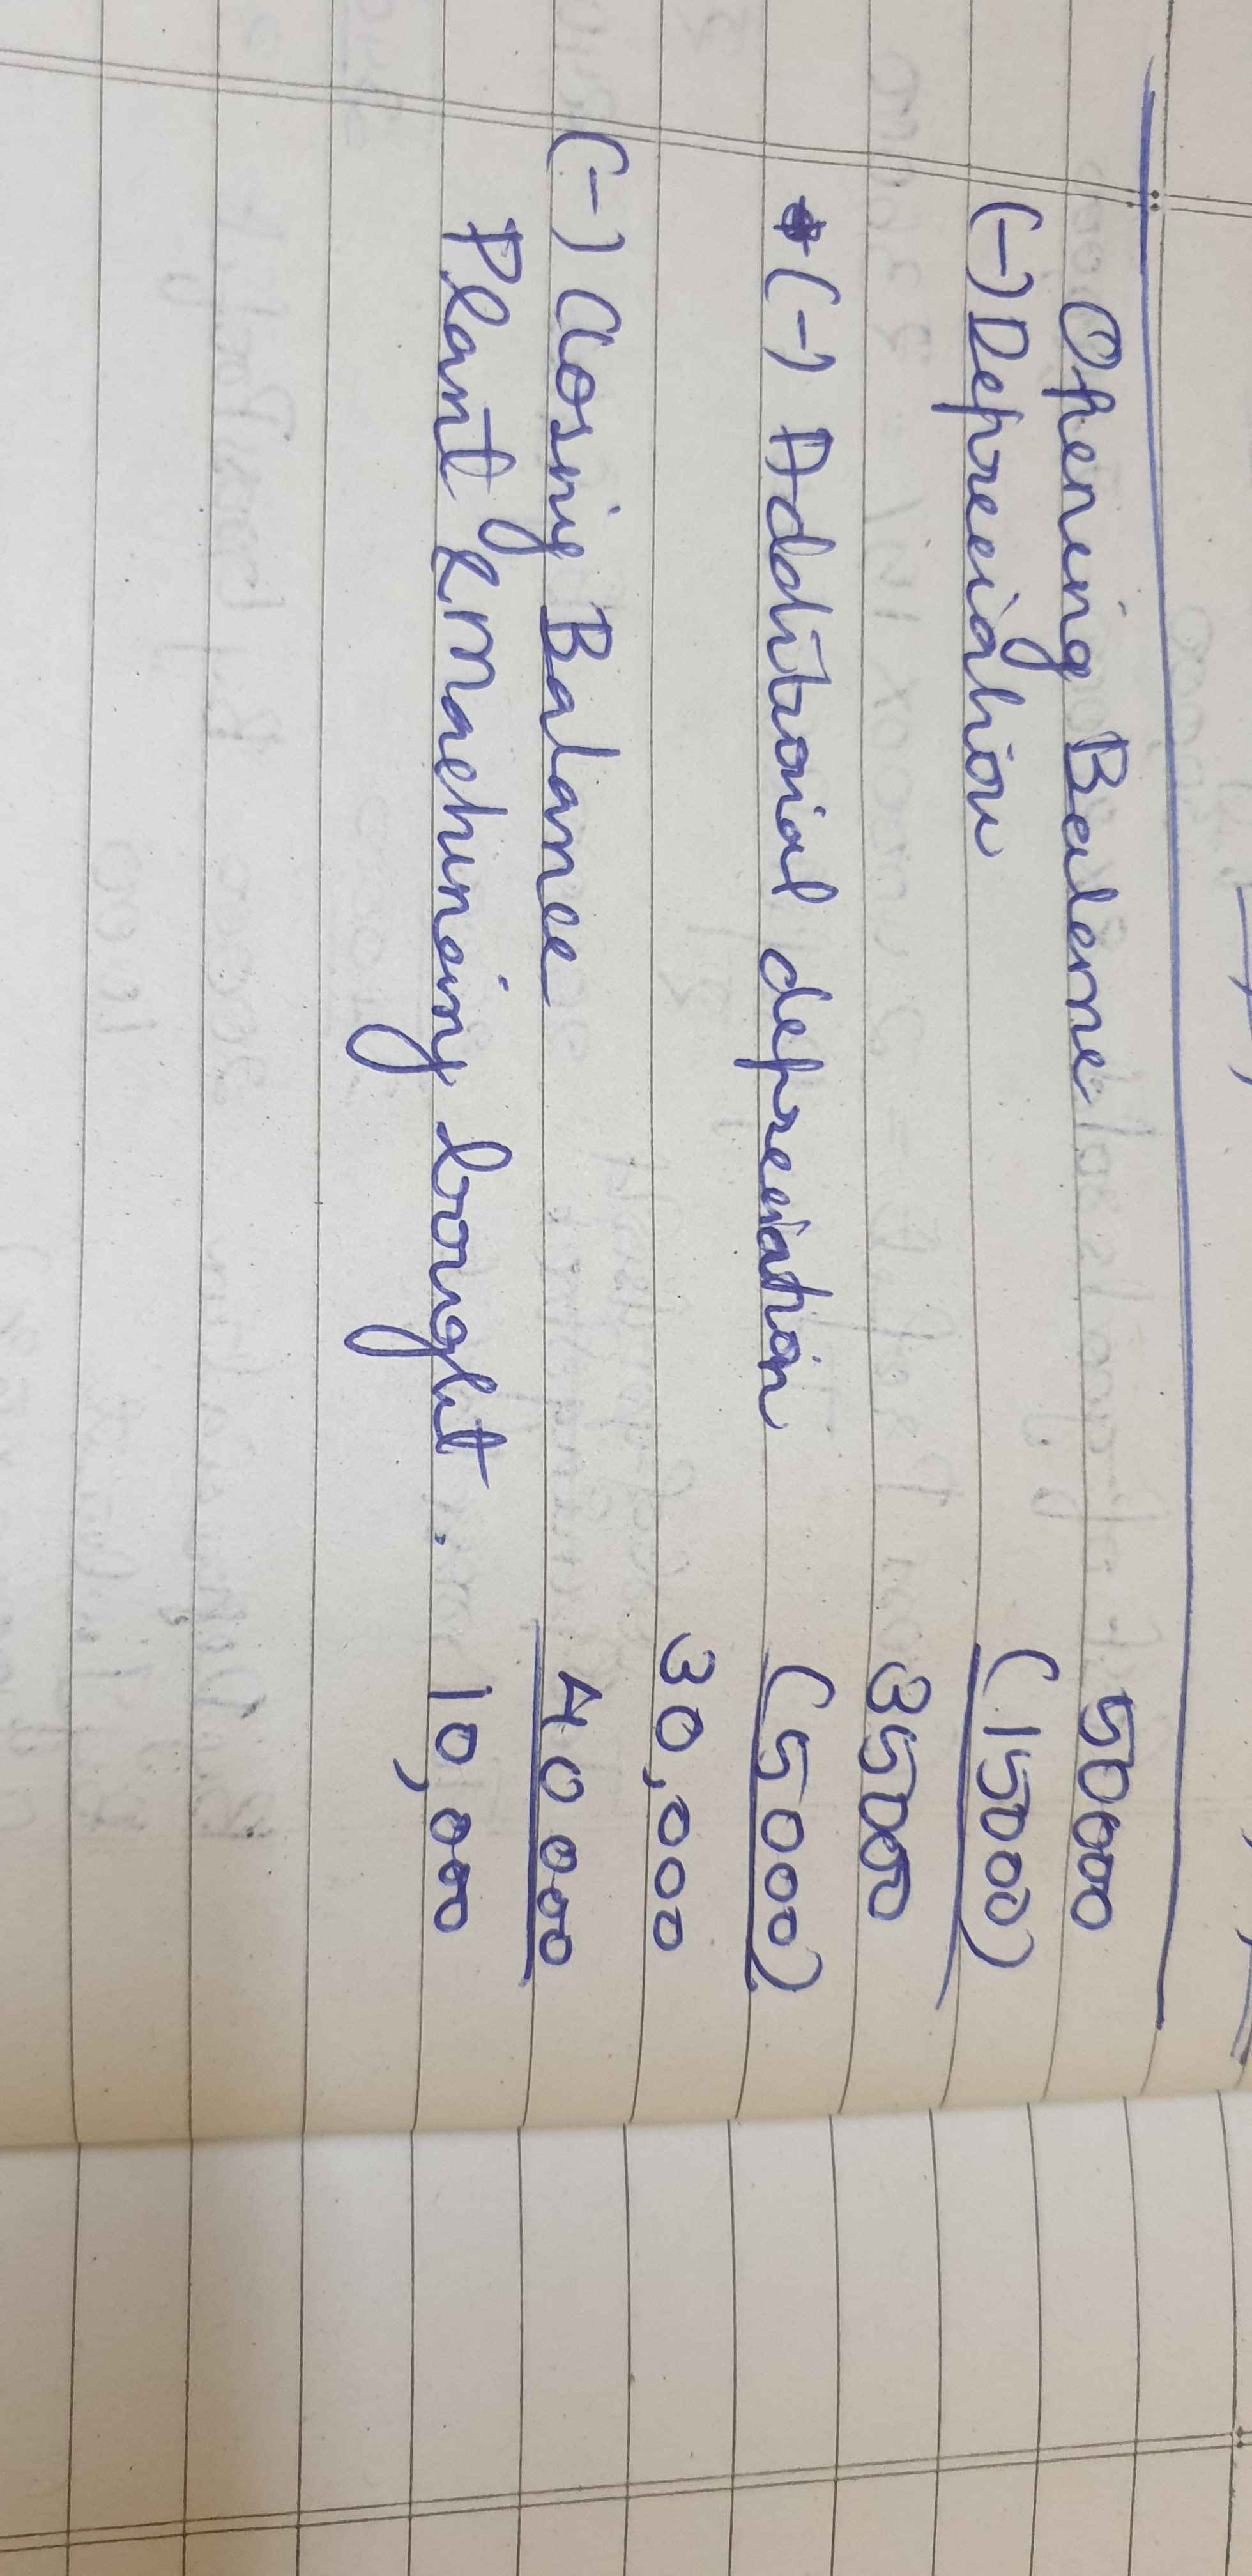 Opening Balance 50000
(-) Depreciation (15000)
35000
(-) Additional depreciation (5000)
30,000
(-) Closing Balance 40000
Plant & Machinery bought. 10,000